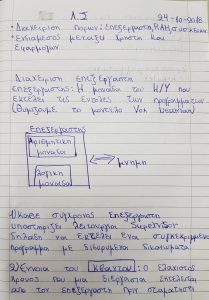 Λ.Σ 24-10-2018
• Διαχείριση Πόρων: Επεξεργαστή, RAM, συσκευών
• Ενδιάμεσος μεταξύ χρήστη και
Εφαρμογών
Διαχείριση Επεξεργαστή
Επεξεργαστής: Η μονάδα του Η/Υ που
εκτελεί τις εντολές των προγραμμάτων
(Θυμίζουμε το μοντέλο Von Neumann)
Επεξεργαστής
Αριθμητική
μονάδα
μνήμη
λογική
μονάδα
1) Κάθε σύγχρονος επεξεργαστή
υποστηρίζει λειτουργία
δηλαδή να εκτελεί ένα συγκεκριμένο
πρόγραμμα με δικαιώματα
2) Έννοια του κβάντου: Ο ελάχιστος
χρόνος που μια διεργασία εκτελείται
από τον επεξεργαστή πριν σταματήσει